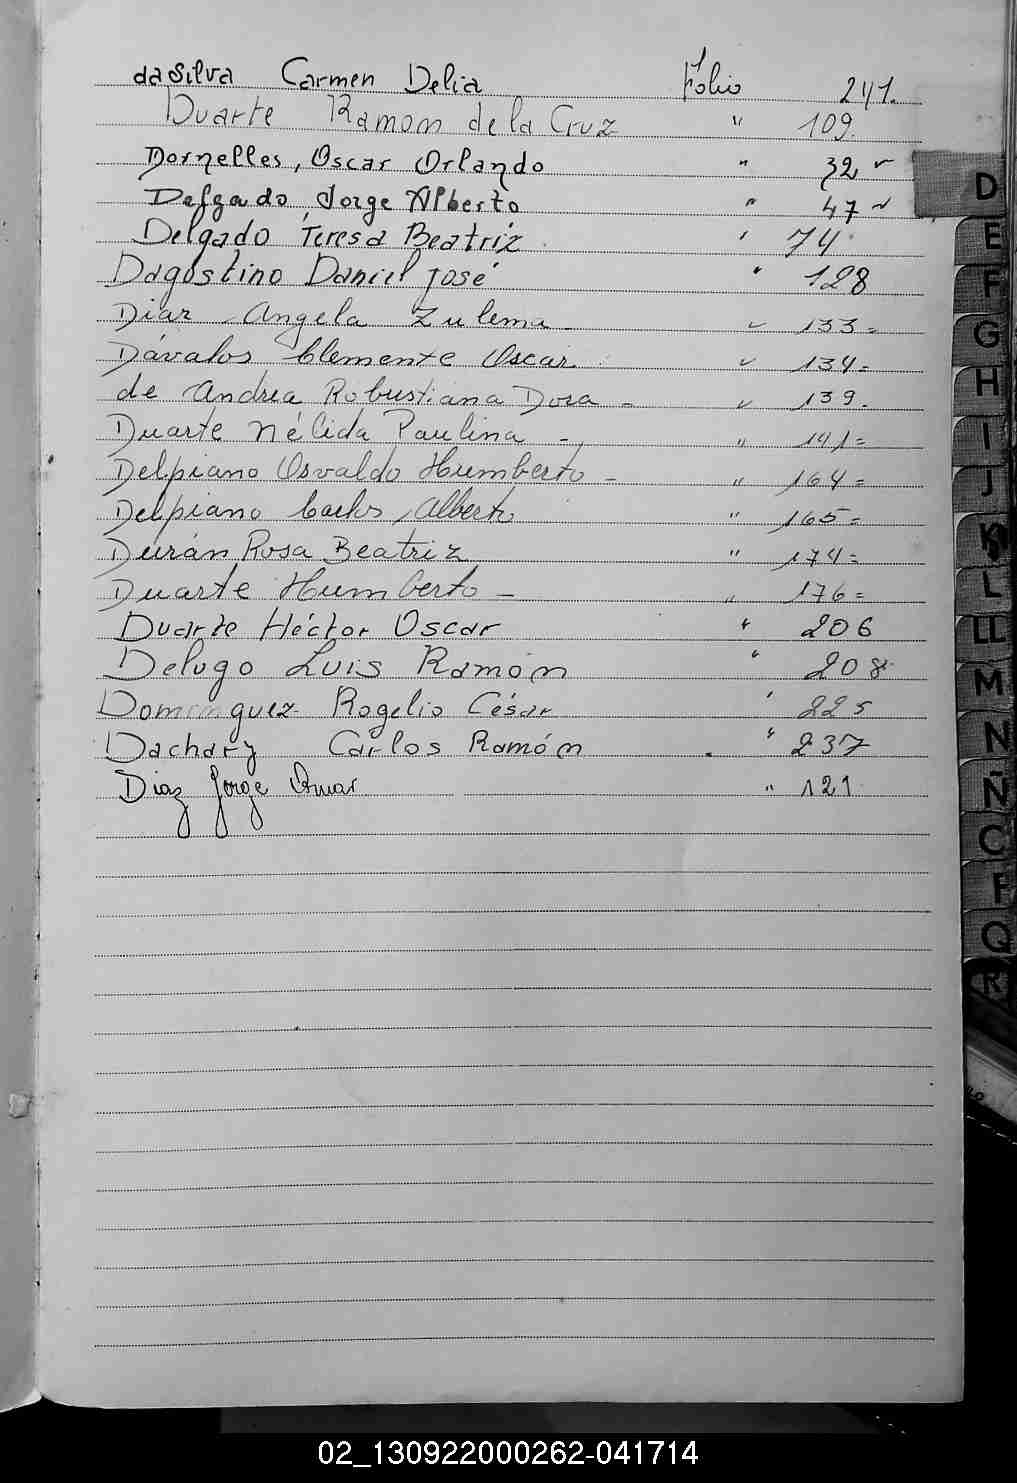 da Silva Carmen Delia Folio 241.
Duarte Ramon de la Cruz " 109.
Dornelles, Oscar Orlando " 32
Delgado, Jorge Alberto " 47
Delgado Teresa Beatriz " 74
Dagostino Daniel José " 128
Diaz Angela Zulema " 133=
Dávalos Clemente Oscar " 134=
de Andrea Robustiana Dora - " 139.
Duarte Nélida Paulina - " 141=
Delpiano Osvaldo Humberto - " 164=
Delpiano Carlos Alberto " 165=
Durán Rosa Beatriz " 174=
Duarte Humberto - " 176=
Duarte Héctor Oscar " 206
Delugo Luis Ramón " 208
Dominguez Rogelio César " 225
Dachary Carlos Ramón " 237
Diaz Jorge Omar " 121
D
E
F
G
H
I
J
K
L
LL
M
N
Ñ
O
P
Q
R
02_130922000262-041714